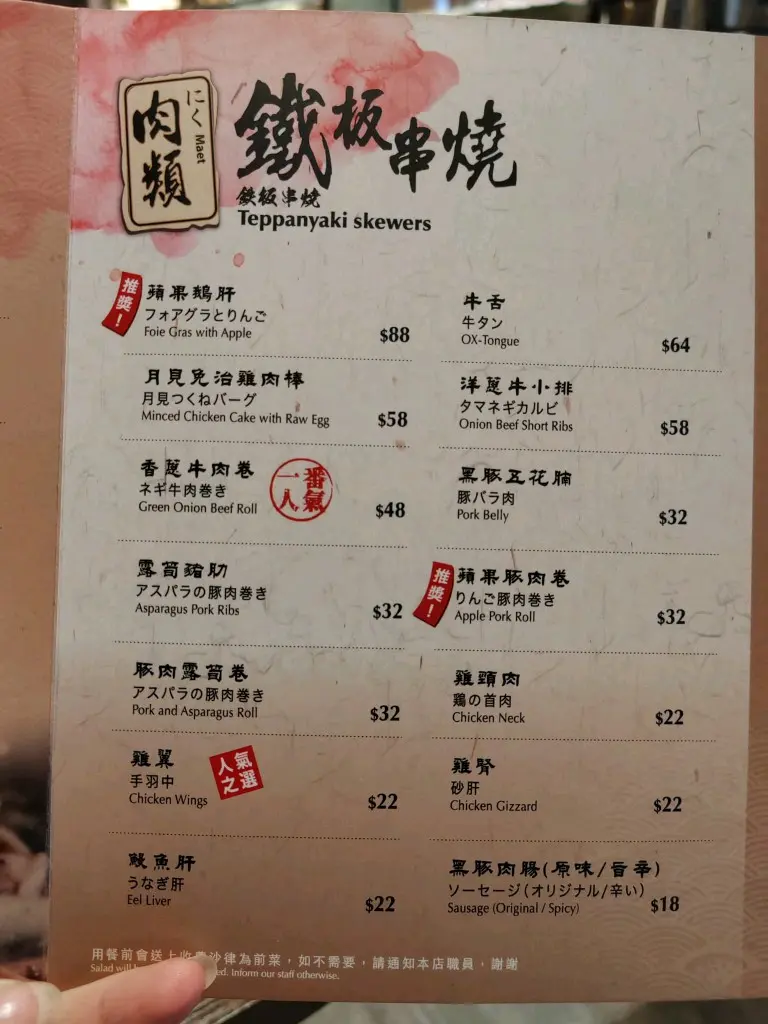 肉類
にく Maet
鐵板串燒
鉄板串焼
Teppanyaki skewers
推獎!
蘋果鵝肝
フォアグラとりんご
Foie Gras with Apple
$88
月見免治雞肉棒
月見つくねバーグ
Minced Chicken Cake with Raw Egg
$58
香蔥牛肉卷
ネギ牛肉巻き
Green Onion Beef Roll
一番人氣
$48
露筍豬肋
アスパラの豚肉巻き
Asparagus Pork Ribs
$32
豚肉露筍卷
アスパラの豚肉巻き
Pork and Asparagus Roll
$32
雞翼
手羽中
Chicken Wings
人氣之選
$22
鰻魚肝
うなぎ肝
Eel Liver
$22
牛舌
牛タン
OX-Tongue
$64
洋蔥牛小排
タマネギカルビ
Onion Beef Short Ribs
$58
黑豚五花腩
豚バラ肉
Pork Belly
$32
推獎!
蘋果豚肉卷
りんご豚肉巻き
Apple Pork Roll
$32
雞頸肉
鶏の首肉
Chicken Neck
$22
雞腎
砂肝
Chicken Gizzard
$22
黑豚肉腸(原味/旨辛)
ソーセージ(オリジナル/辛い)
Sausage (Original / Spicy)
$18
用餐前會送上收費沙律為前菜，如不需要，請通知本店職員，謝謝
Salad will Inform our staff otherwise.